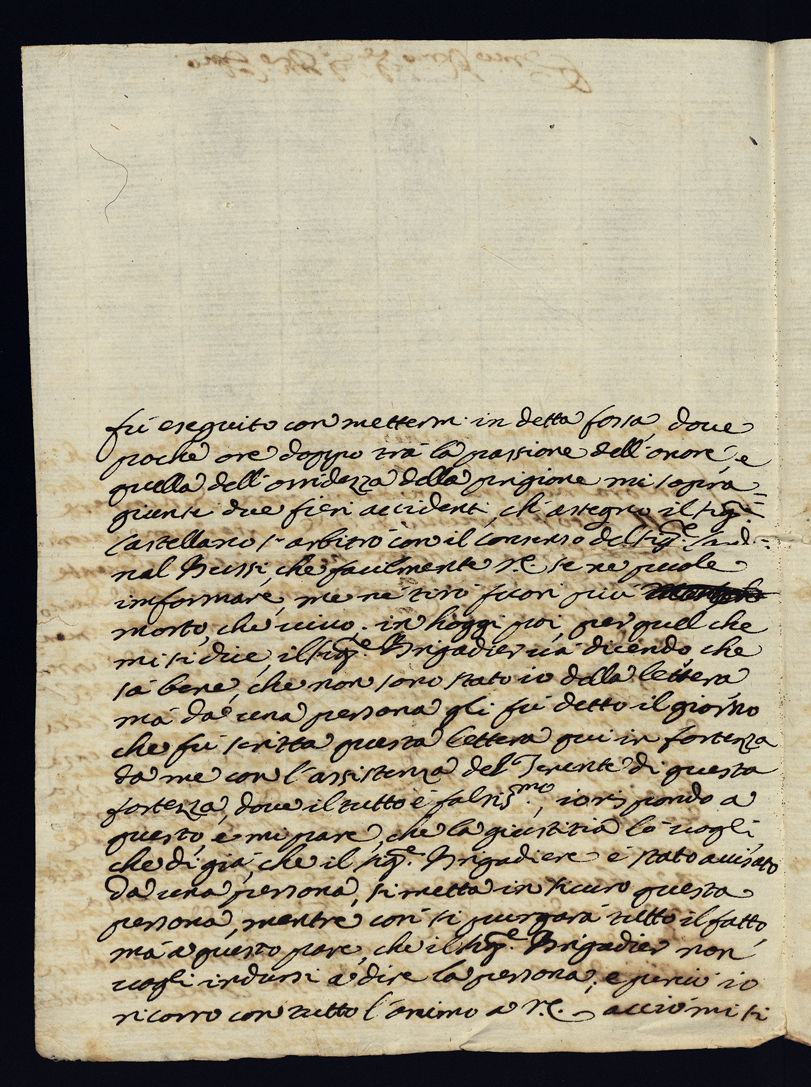 fù eseguito con mettermi in detta fossa, dove
poche ore doppo trà la passione dell'onore, e
quella dell'orridezza della prigione mi sopra=
giunsi due fieri accidenti, ch'astegno il sig.e
Castellano s'arbitrò con il Consenso del sig.e Card:=
nal Bussi, che facilmente V.E. se ne puole
informare, me ne tirò fuori più
morto, che vivo. in hoggi poi, per quel che
mi si dice, il sig.e Brigadier và dicendo che
sà bene, che non sono stato io della lettera
mà da una persona gli fù detto il giorno
che fù scritta questa lettera qui in fortezza
da me con l'assistenza del Tenente di questa
fortezza, dove il tutto è falsiss.mo, io rispondo a
questo, e mi pare, che la giustitia lo vogli
che di già, che il sig.e Brigadiere è stato avisato
da una persona, si metta in sicuro questa
persona, mentre così si purgarà tutto il fatto,
mà a questo pare, che il sig.e Brigadier non
vogli indursi a dire la persona, e perciò io
ricorro con tutto l'animo a V.E. acciò mi si